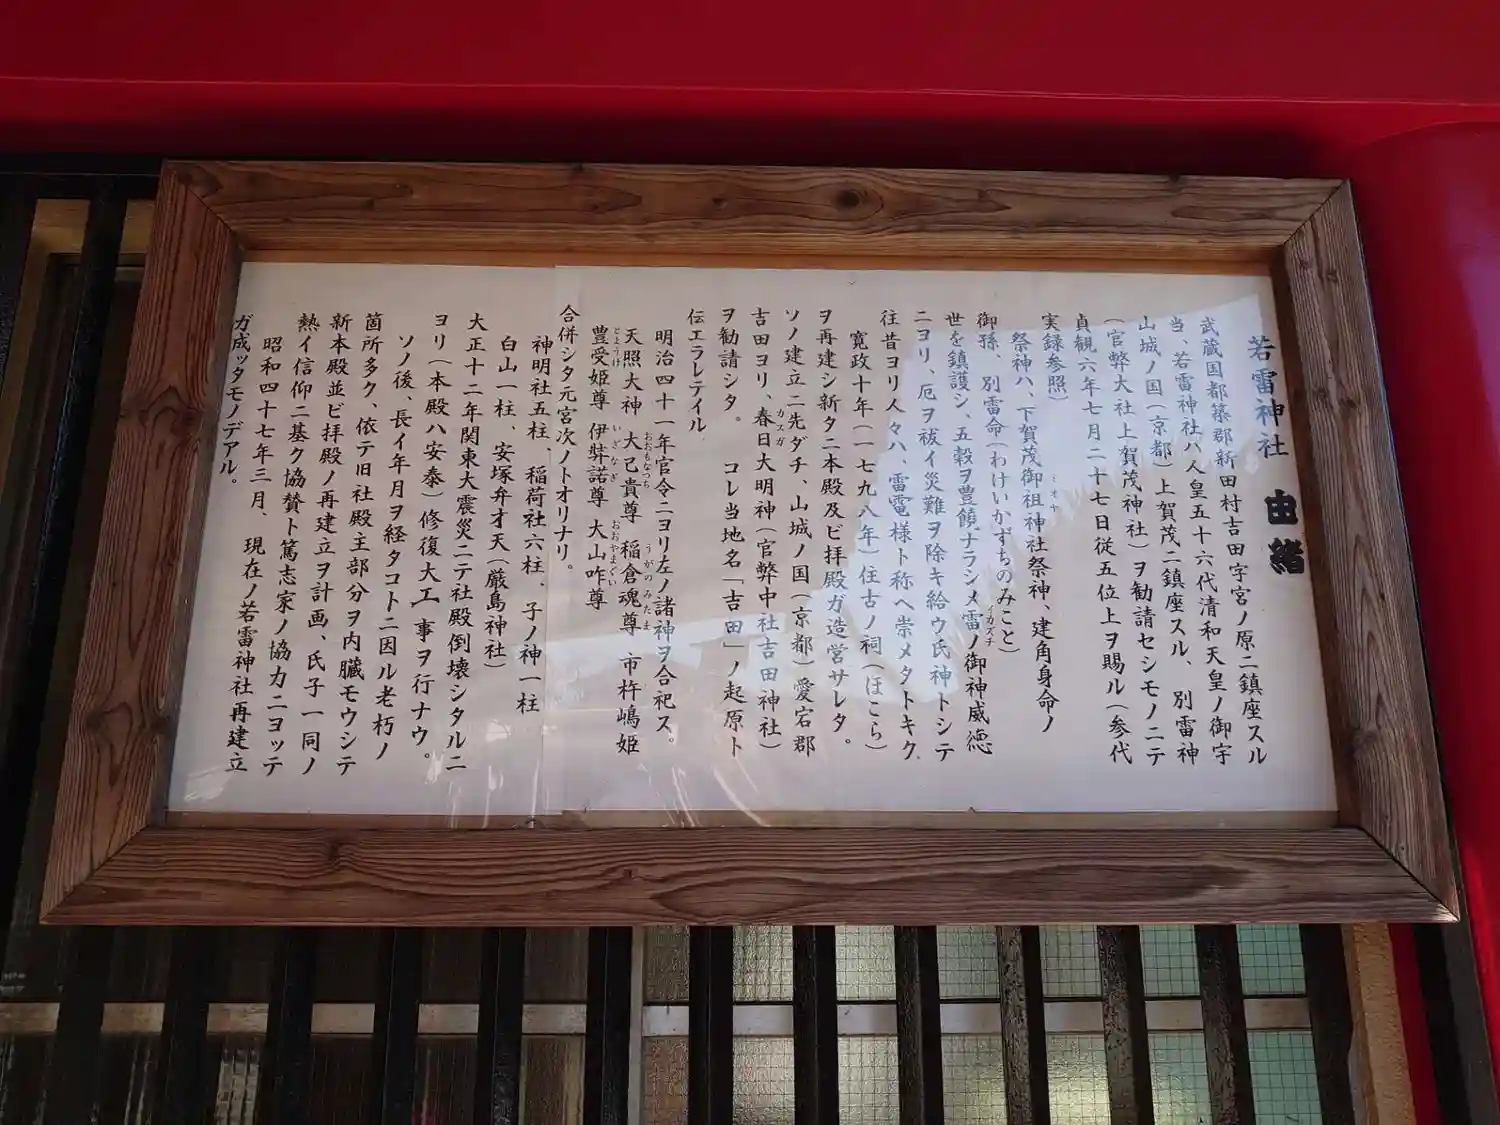 若雷神社 由緒
武蔵国都築郡新田村吉田字宮ノ原ニ鎮座スル
当、若雷神社ハ人皇五十六代清和天皇ノ御宇
山城ノ国(京都)上賀茂ニ鎮座スル、別雷神
(官弊大社上賀茂神社)ヲ勧請セシモノニテ
貞観六年七月二十七日従五位上ヲ賜ル(参代
実録参照)
祭神ハ、下賀茂御祖神社祭神、建角身命ノ
ミオヤ
御孫、別雷命(わけいかずちのみこと)
世を鎮護シ、五穀ヲ豊饒ナラシメ雷ノ御神威徳
イカズチ
ニヨリ、厄ヲ祓イ災難ヲ除キ給ウ氏神トシテ
往昔ヨリ人々ハ、雷電様ト称ヘ崇メタトキク
寛政十年(一七九八年)住古ノ祠(ほこら)
ヲ再建シ新タニ本殿及ビ拝殿ガ造営サレタ。
ソノ建立ニ先ダチ、山城ノ国(京都)愛宕郡
吉田ヨリ、春日大明神(官弊中社吉田神社)
カスガ
ヲ勧請シタ。 コレ当地名「吉田」ノ起原ト
伝エラレテイル
明治四十一年官令ニヨリ左ノ諸神ヲ合祀ス。
天照大神 大己貴尊 稲倉魂尊 市杵嶋姫
おおもなつち うがのみたま
豊受姫尊 伊弉諾尊 大山咋尊
とようけ いざなぎ おおやまぐい
合併シタ元宮次ノトオリナリ。
神明社五柱、稲荷社六柱、子ノ神一柱
白山一柱、安塚弁才天(厳島神社)
大正十二年関東大震災ニテ社殿倒壊シタルニ
ヨリ(本殿ハ安泰)修復大工事ヲ行ナウ。
ソノ後、長イ年月ヲ経タコトニ因ル老朽ノ
箇所多ク、依テ旧社殿主部分ヲ内臓モウシテ
新本殿並ビ拝殿ノ再建立ヲ計画、氏子一同ノ
熱イ信仰ニ基ク協賛ト篤志家ノ協力ニヨッテ
昭和四十七年三月、現在ノ若雷神社再建立
ガ成ッタモノデアル。